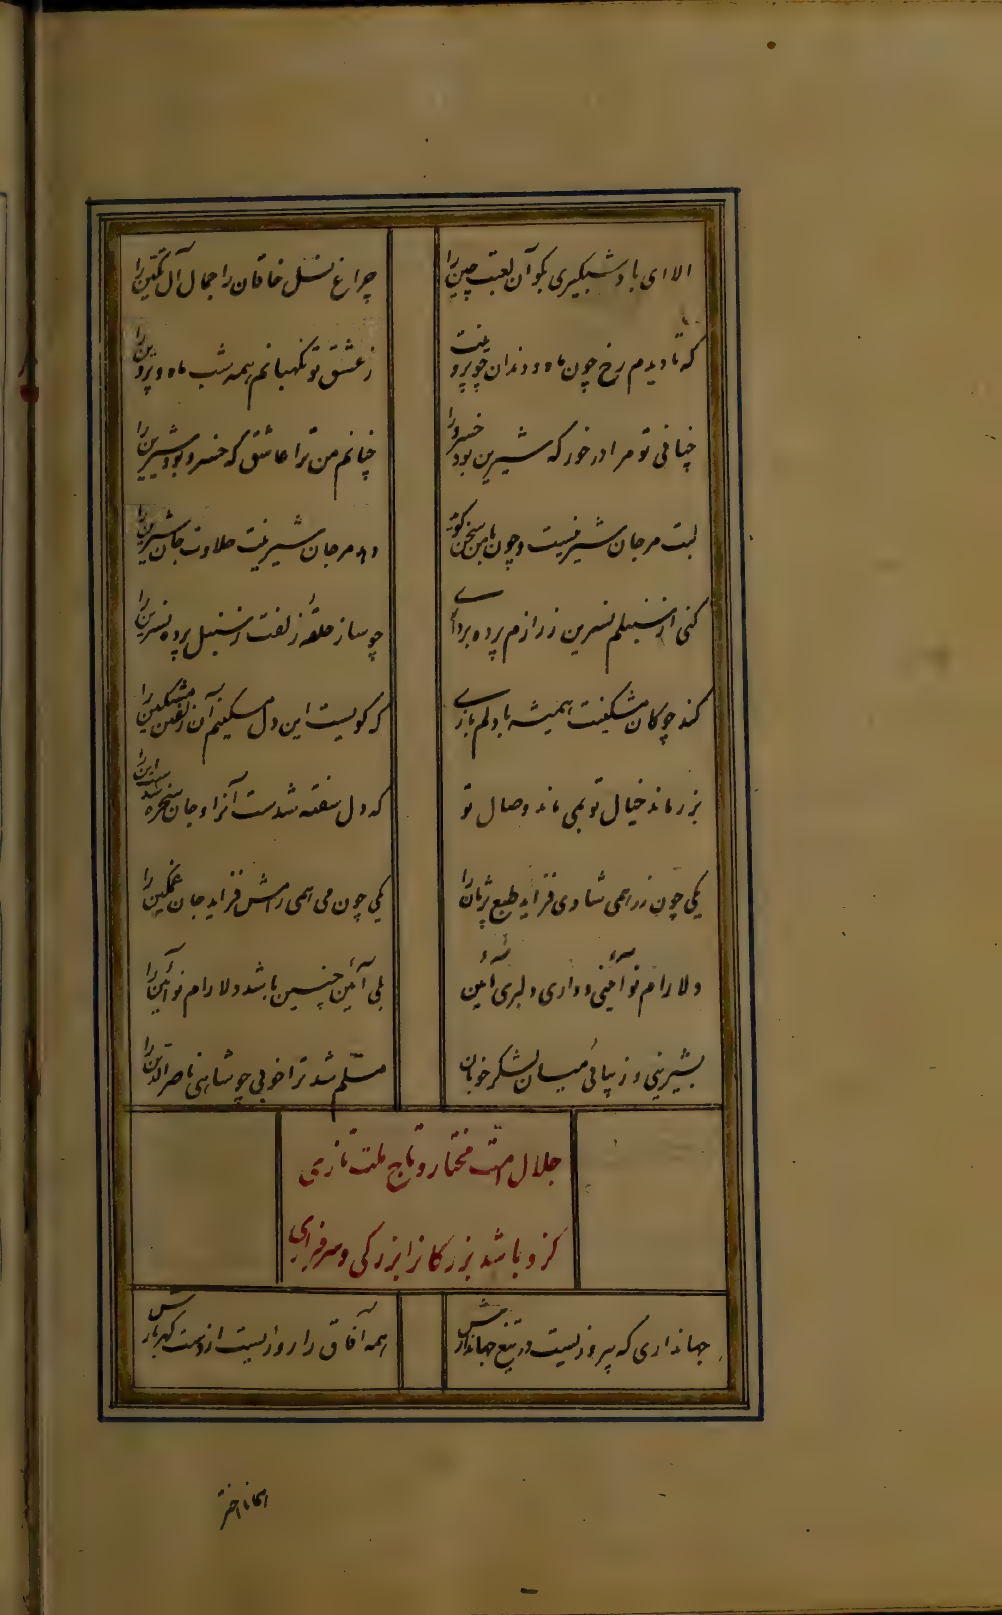 الا ای باد شبگیری بگو آن لعبت چین را
چراغ نسل خاقان را جمال آل تکین را
که تا دیدم رخ چون ماه و دندان چو پروینت
ز عشق تو نگهبانم همه شب ماه و پروین را
چنانی تو مرا در خور که شیرین بود خسرو را
چنانم من ترا عاشق که خسرو بود شیرین را
لبت مرجان شیرینست و چون با من سخن گوئی
دهد مرجان شیرینت حلاوت جان شیرین را
کنی از سنبلم نسرین ز رازم پرده برداری
چو سازد حلقهٔ زلفت ز سنبل پرده نسرین را
کند چوگان مشکینت همیشه با دلم بازی
که گویست این دل مسکینم آن زلفین مشکین را
نبرماند خیال تو نمی ماند وصال تو
که دل سفته شدست آنرا و جان سخره شد این را
یکی چون زر همی شادی فزاید طبع پژمان را
یکی چون می همی رامش فزاید جان غمگین را
دلارام نو آئینی و داری دلبری آئین
بلی آئین چنین باشد دلارام نو آئین را
بشیرینی و زیبائی میان لشکر خوبان
مسلم شد ترا خوبی چو شاهی ناصر الدین را
جلال امت مختار و تاج ملت تازی
کزو باشد بزرگان را بزرگی و سرفرازی
جهانداری که پیروزیست در تیغ جهاندارش
همه آفاق را روزیست از دست گهربارش
همانا اختر